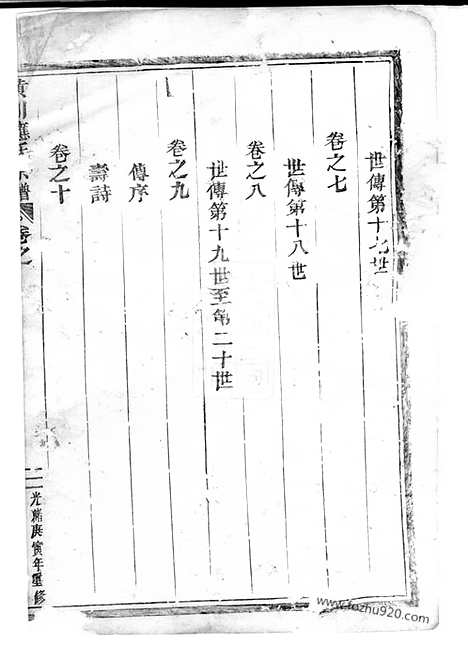 世傳第十七世
卷之七
世傳第十八世
卷之八
世傳第十九世至第二十世
卷之九
傳序
壽詩
卷之十
黃川 宗譜 卷之
二 光緒庚寅年重修
www.fozhu920.com